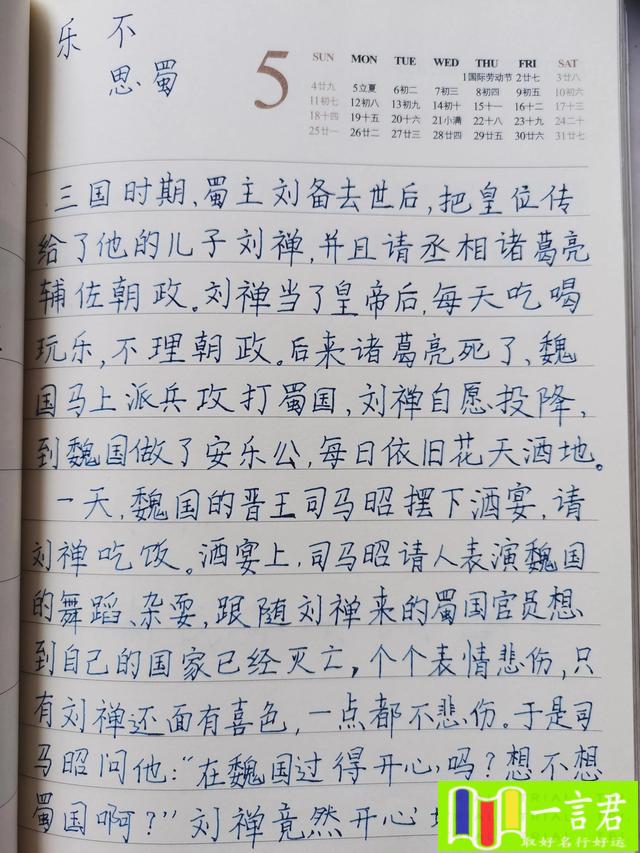 乐不
思蜀
5
SUN MON TUE WED THU FRI SAT
1国际劳动节 2廿七 3廿八
4廿九 5立夏 6初二 7初三 8初四 9初五 10初六
11初七 12初八 13初九 14初十 15十一 16十二 17十三
18十四 19十五 20十六 21小满 22十八 23十九 24二十
25廿一 26廿二 27廿三 28廿四 29廿五 30廿六 31廿七
三国时期、蜀主刘备去世后,把皇位传
给了他的儿子刘禅,并且请丞相诸葛亮
辅佐朝政。刘禅当了皇帝后,每天吃喝
玩乐,不理朝政。后来诸葛亮死了、魏
国马上派兵攻打蜀国,刘禅自愿投降,
到魏国做了安乐公,每日依旧花天酒地。
一天,魏国的晋王司马昭摆下酒宴,请
刘禅吃饭。酒宴上,司马昭请人表演魏国
的舞蹈、杂耍,跟随刘禅来的蜀国官员想
到自己的国家已经灭亡,个个表情悲伤,只
有刘禅还面有喜色,一点都不悲伤。于是司
马昭问他:“在魏国过得开心吗?想不想
蜀国啊?”刘禅竟然开心
一言君
取好名行好运